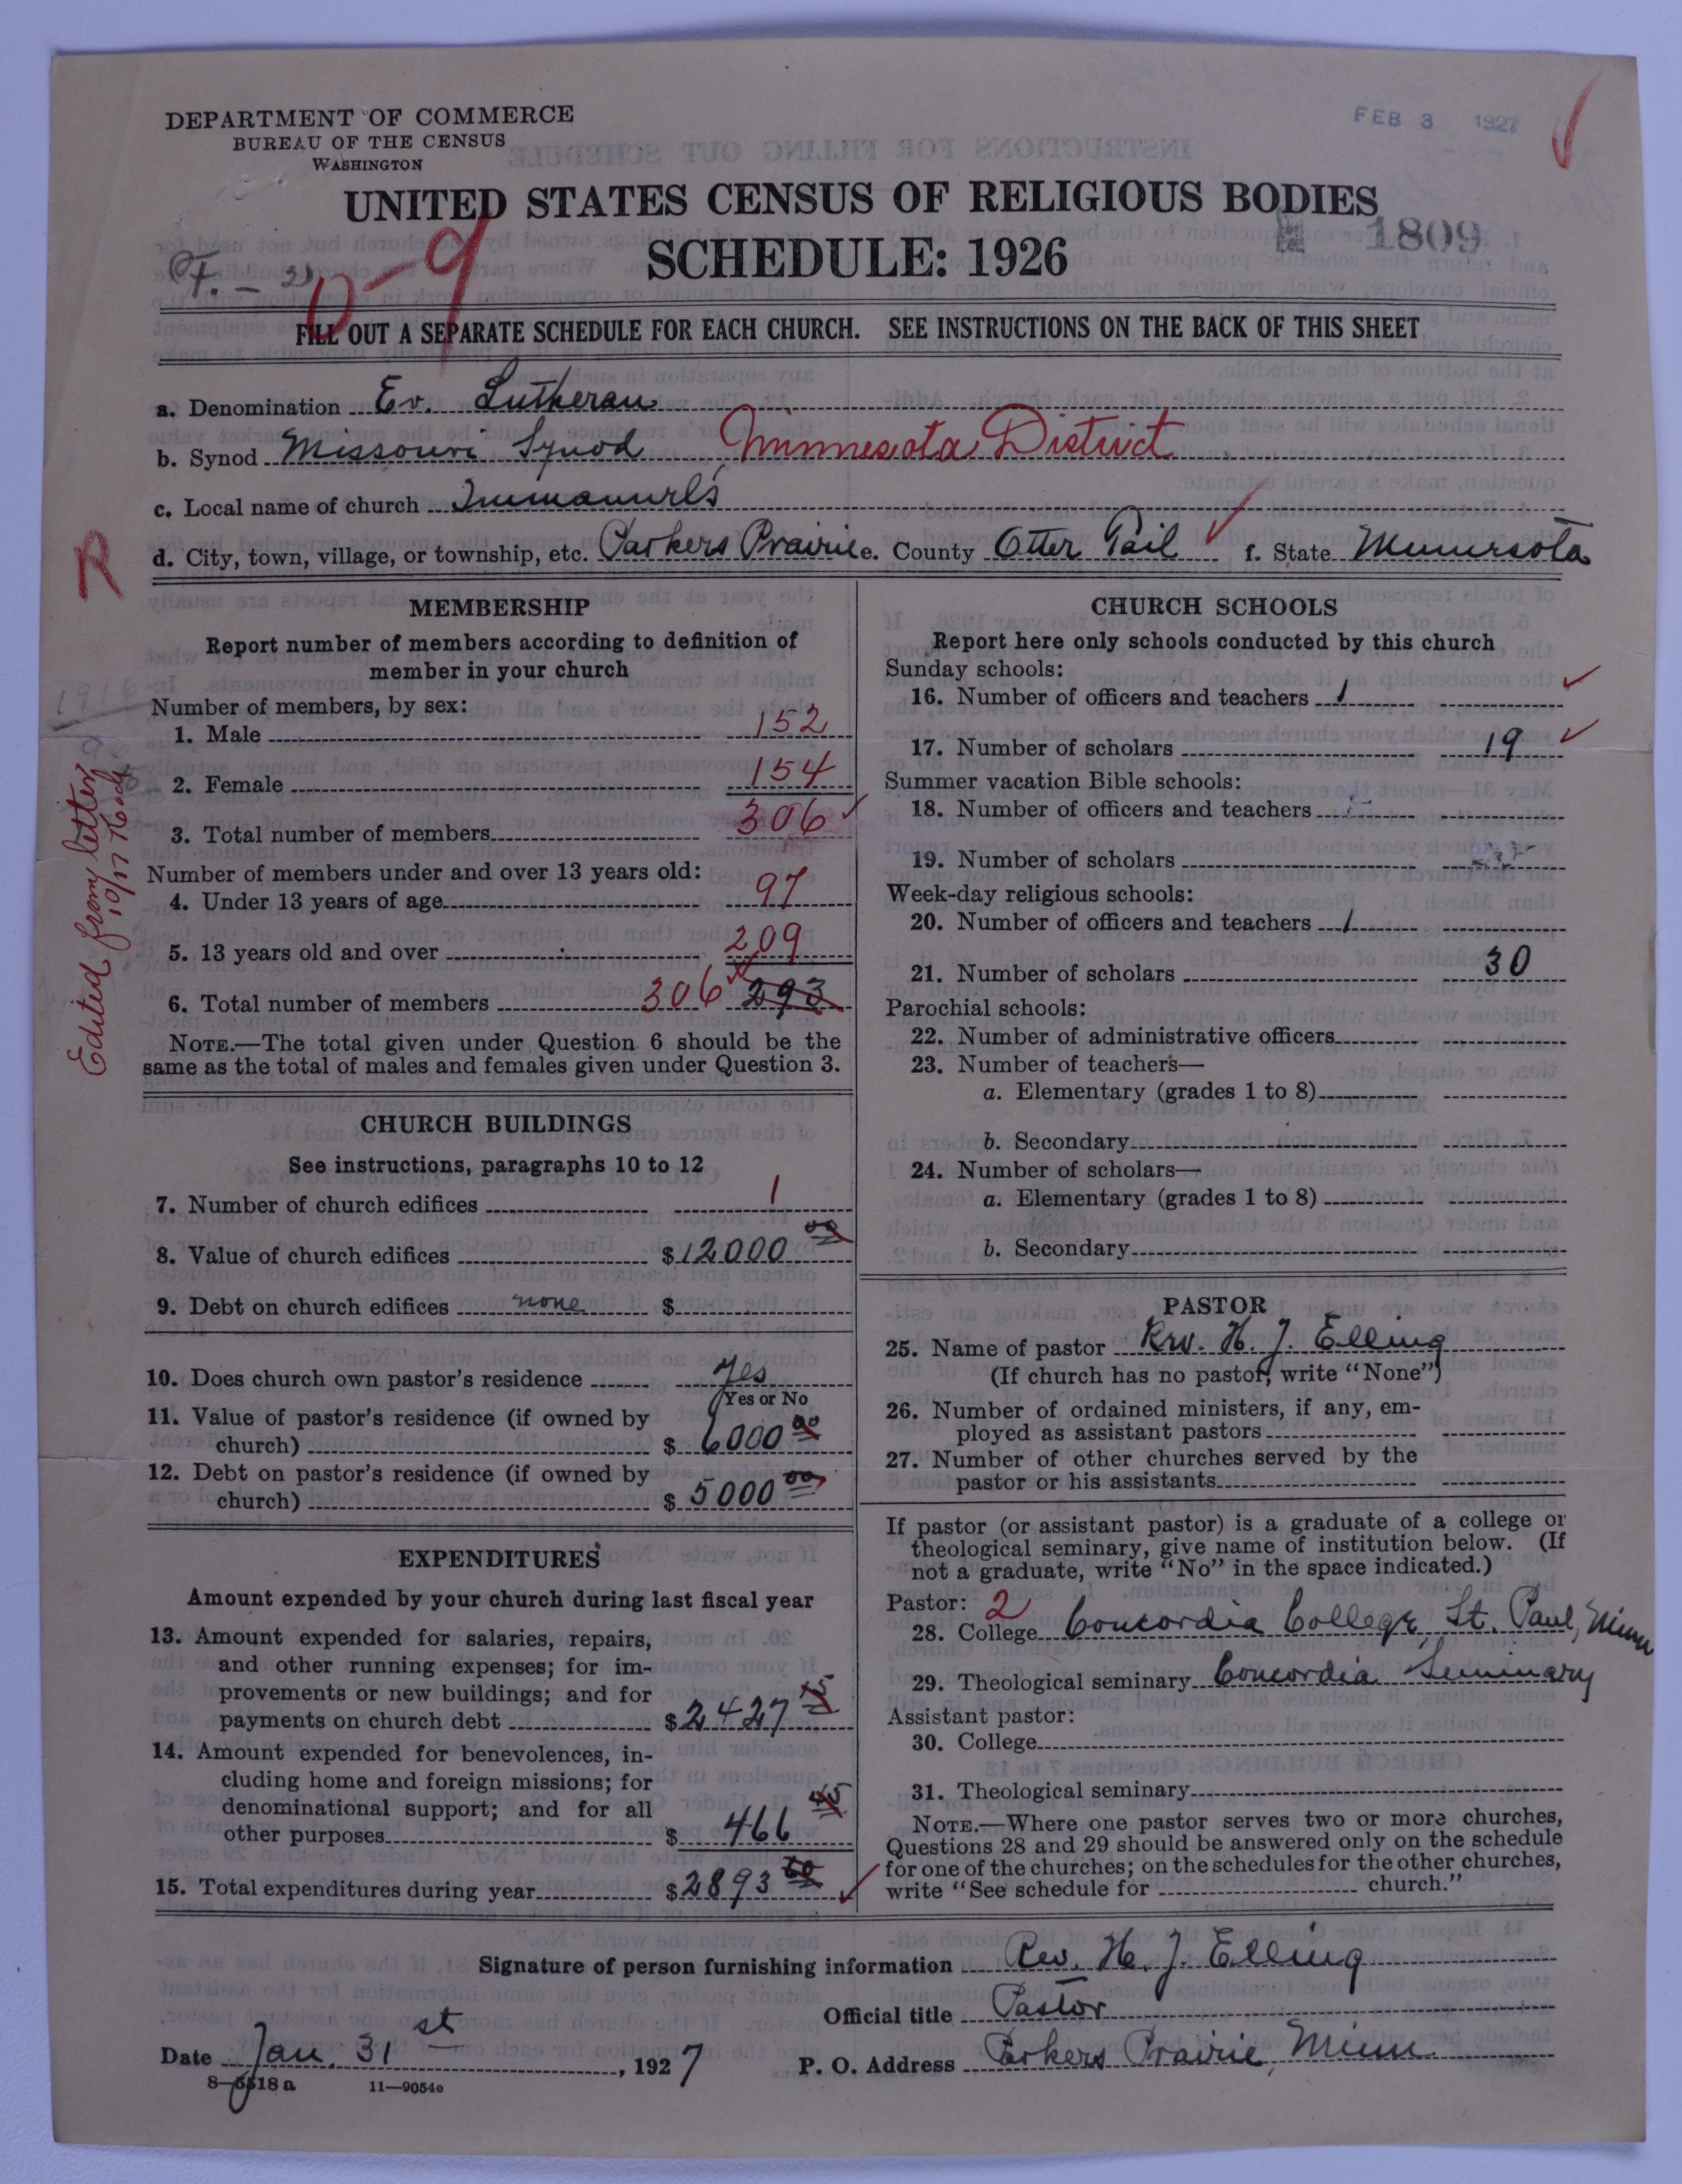 DEPARTMENT OF COMMERCE
BUREAU OF THE CENSUS
WASHINGTON
FEB 3 1927
UNITED STATES CENSUS OF RELIGIOUS BODIES
SCHEDULE: 1926
1809
0-9
FILL OUT A SEPARATE SCHEDULE FOR EACH CHURCH. SEE INSTRUCTIONS ON THE BACK OF THIS SHEET
a. Denomination Ev. Lutheran
b. Synod Missouri Synod Minnesota District
c. Local name of church Immanuel's
d. City, town, village, or township, etc. Parkers Prairie e. County Otter Tail f. State Minnesota
R
MEMBERSHIP
Report number of members according to definition of
member in your church
1916
Number of members, by sex:
1. Male 152
2. Female 154
3. Total number of members 306
Number of members under and over 13 years old:
4. Under 13 years of age 97
5. 13 years old and over 209
6. Total number of members 306 293
NOTE.—The total given under Question 6 should be the
same as the total of males and females given under Question 3.
Edited from letter
10/17
CHURCH BUILDINGS
See instructions, paragraphs 10 to 12
7. Number of church edifices 1
8. Value of church edifices $12000 00
9. Debt on church edifices none $
10. Does church own pastor's residence Yes
Yes or No
11. Value of pastor's residence (if owned by
church) $ 6000 00
12. Debt on pastor's residence (if owned by
church) $ 5000 00
EXPENDITURES
Amount expended by your church during last fiscal year
13. Amount expended for salaries, repairs,
and other running expenses; for im-
provements or new buildings; and for
payments on church debt $2427 15
14. Amount expended for benevolences, in-
cluding home and foreign missions; for
denominational support; and for all
other purposes $ 466 45
15. Total expenditures during year $2893 60
CHURCH SCHOOLS
Report here only schools conducted by this church
Sunday schools:
16. Number of officers and teachers 1
17. Number of scholars 19
Summer vacation Bible schools:
18. Number of officers and teachers
19. Number of scholars
Week-day religious schools:
20. Number of officers and teachers 1
21. Number of scholars 30
Parochial schools:
22. Number of administrative officers
23. Number of teachers—
a. Elementary (grades 1 to 8)
b. Secondary
24. Number of scholars—
a. Elementary (grades 1 to 8)
b. Secondary
PASTOR
25. Name of pastor Rev. H. J. Elling
(If church has no pastor, write "None")
26. Number of ordained ministers, if any, em-
ployed as assistant pastors
27. Number of other churches served by the
pastor or his assistants
If pastor (or assistant pastor) is a graduate of a college or
theological seminary, give name of institution below. (If
not a graduate, write "No" in the space indicated.)
Pastor: 2
28. College Concordia College, St. Paul, Minn
29. Theological seminary Concordia Seminary
Assistant pastor:
30. College
31. Theological seminary
NOTE.—Where one pastor serves two or more churches,
Questions 28 and 29 should be answered only on the schedule
for one of the churches; on the schedules for the other churches,
write "See schedule for church."
Signature of person furnishing information Rev. H. J. Elling
Official title Pastor
Date Jan. 31st, 1927 P. O. Address Parkers Prairie, Minn.
8-5518 a 11—9054e